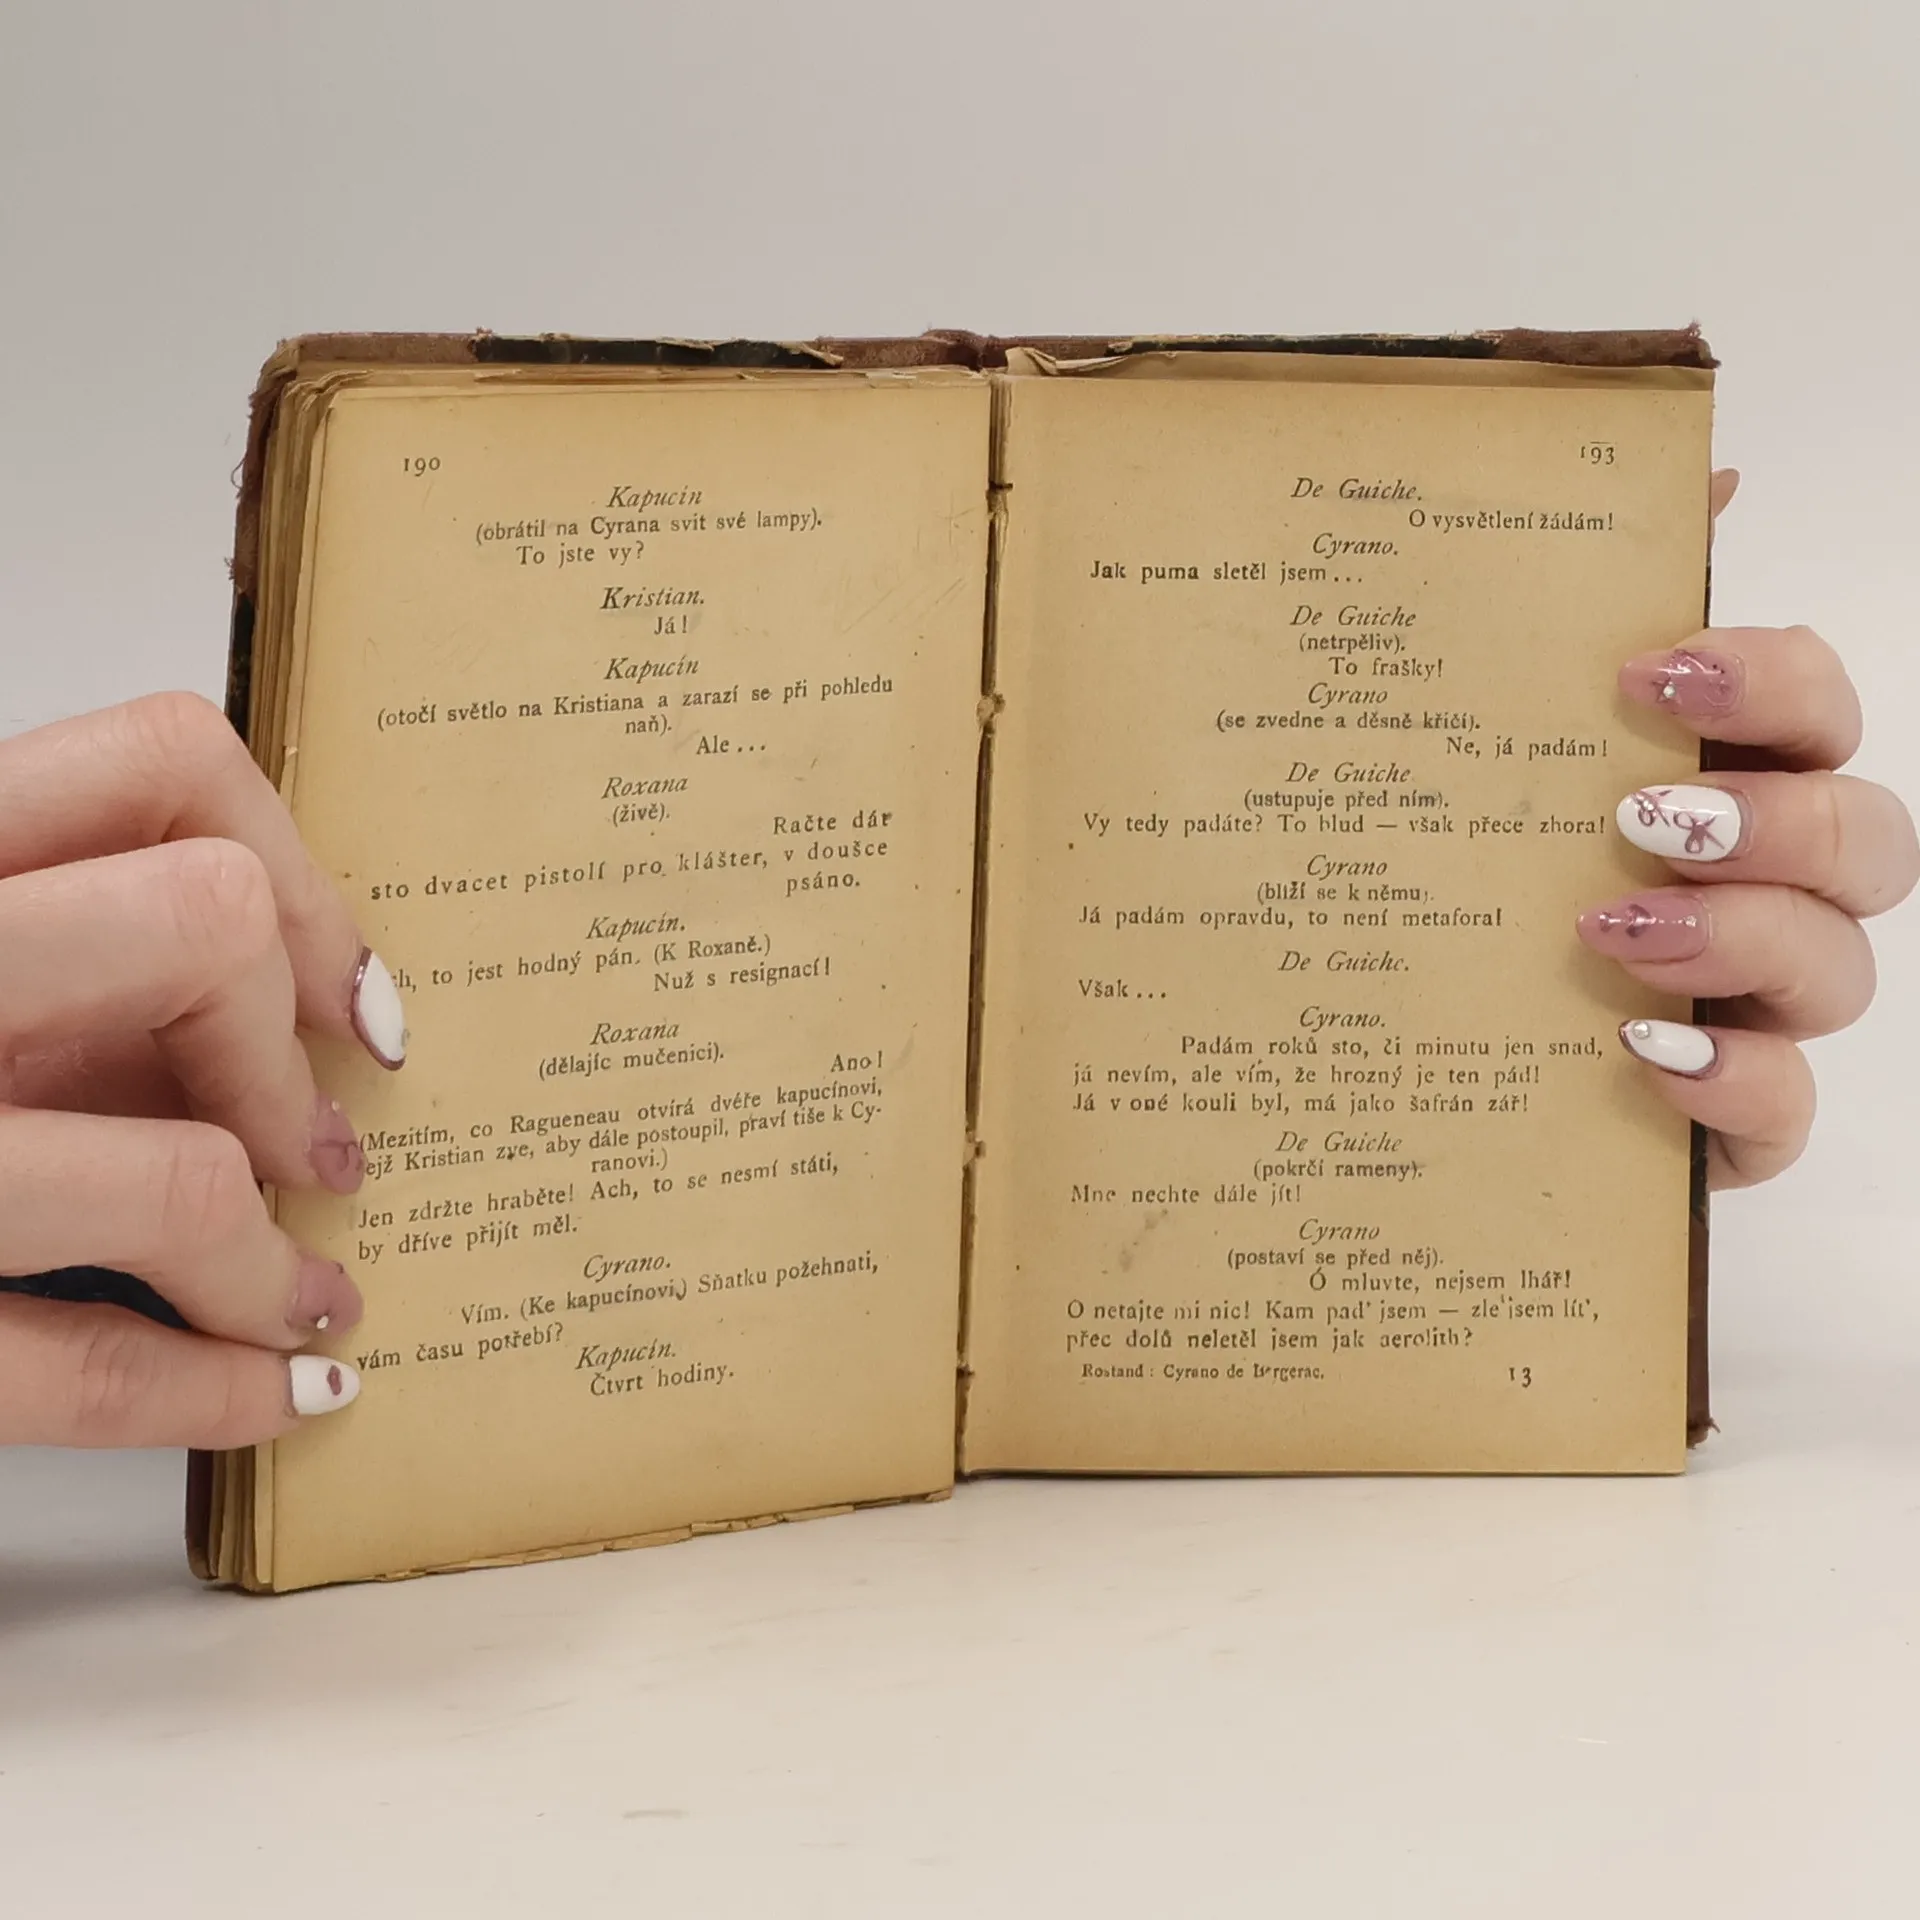 190
Kapucín
(obrátil na Cyrana svit své lampy).
To jste vy?
Kristian.
Já!
Kapucín
(otočí světlo na Kristiana a zarazí se při pohledu
naň).
Ale...
Roxana
(živě).
Račte dár
sto dvacet pistolí pro klášter, v doušce
psáno.
Kapucín.
to jest hodný pán. (K Roxaně.)
Nuž s resignací!
Roxana
(dělajíc mučenici).
Ano!
(Mezitím, co Ragueneau otvírá dvéře kapucínovi,
ejž Kristian zve, aby dále postoupil, praví tiše k Cy-
ranovi.)
Jen zdržte hraběte! Ach, to se nesmí státi,
by dříve přijít měl.
Cyrano.
Vím. (Ke kapucínovi) Sňatku požehnati,
vám času potřebí?
Kapucín.
Čtvrt hodiny.
193
De Guiche.
O vysvětlení žádám!
Cyrano.
Jak puma sletěl jsem...
De Guiche
(netrpěliv).
To frašky!
Cyrano
(se zvedne a děsně křičí).
Ne, já padám!
De Guiche
(ustupuje před ním).
Vy tedy padáte? To blud — však přece zhora!
Cyrano
(blíží se k němu).
Já padám opravdu, to není metafora!
De Guiche.
Však...
Cyrano.
Padám roků sto, či minutu jen snad,
já nevím, ale vím, že hrozný je ten pád!
Já v oné kouli byl, má jako šafrán zář!
De Guiche
(pokrčí rameny).
Mne nechte dále jít!
Cyrano
(postaví se před něj).
Ó mluvte, nejsem lhář!
O netajte mi nic! Kam pad' jsem — zle jsem líť,
přec dolů neletěl jsem jak aerolith?
Rostand: Cyrano de Bergerac. 13